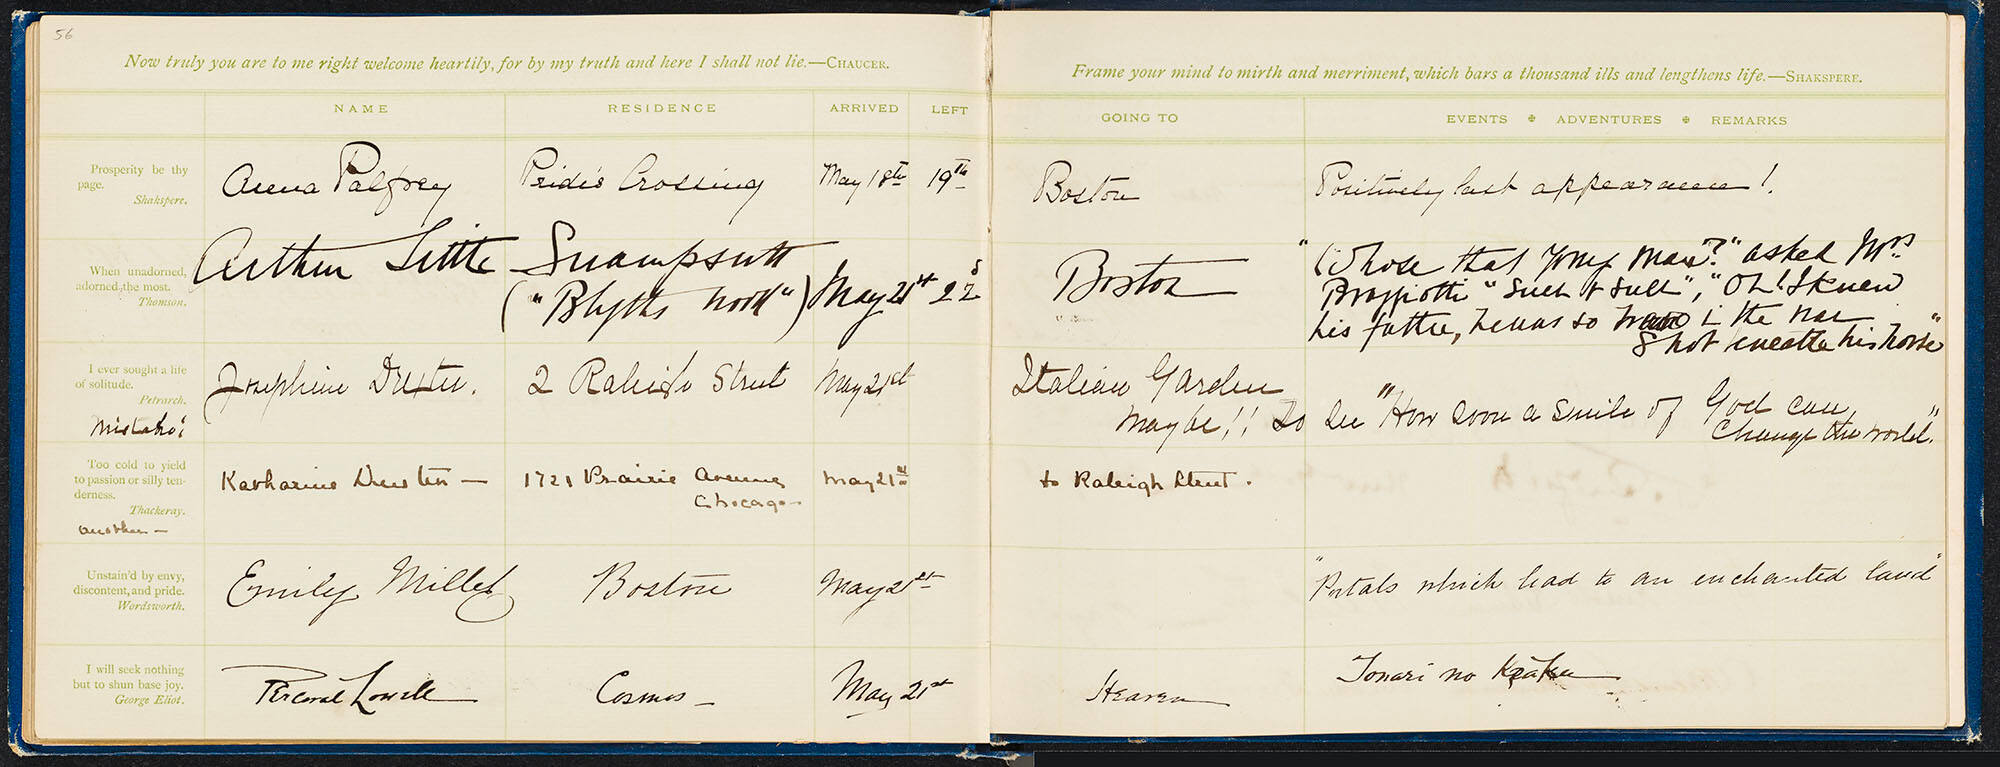 56
Now truly you are to me right welcome heartily, for by my truth and here I shall not lie.—CHAUCER.
NAME RESIDENCE ARRIVED LEFT
Prosperity be thy
page.
Shakspere.
Anna Palfrey Pride's Crossing May 18th 19th
When unadorned,
adorned, the most.
Thomson.
Arthur Little Swampscott
("Blyths wood") May 21st 22
I ever sought a life
of solitude.
Petrarch.
Mistake!
Josephine Dexter. 2 Raleigh Street May 21st
Too cold to yield
to passion or silly ten-
derness.
Thackeray.
another —
Katharine Dexter — 1721 Prairie Avenue May 21st
Chicago —
Unstain'd by envy,
discontent, and pride.
Wordsworth.
Emily Millet Boston May 21st
I will seek nothing
but to shun base joy.
George Eliot.
Percival Lowell Cosmos — May 21st
Frame your mind to mirth and merriment, which bars a thousand ills and lengthens life.—SHAKSPERE.
GOING TO EVENTS ✠ ADVENTURES ✠ REMARKS
Boston Positively last appearance!
Boston "Whose that young man?" asked Mrs
Braggiotti "Such & such", "Oh! I knew
his father, he was so in the war
Shot his horse"
Italian Garden
Maybe!! To see "How soon a smile of God can
Change the world."
to Raleigh Street.
"Portals which lead to an enchanted land"
Heaven Tonari no